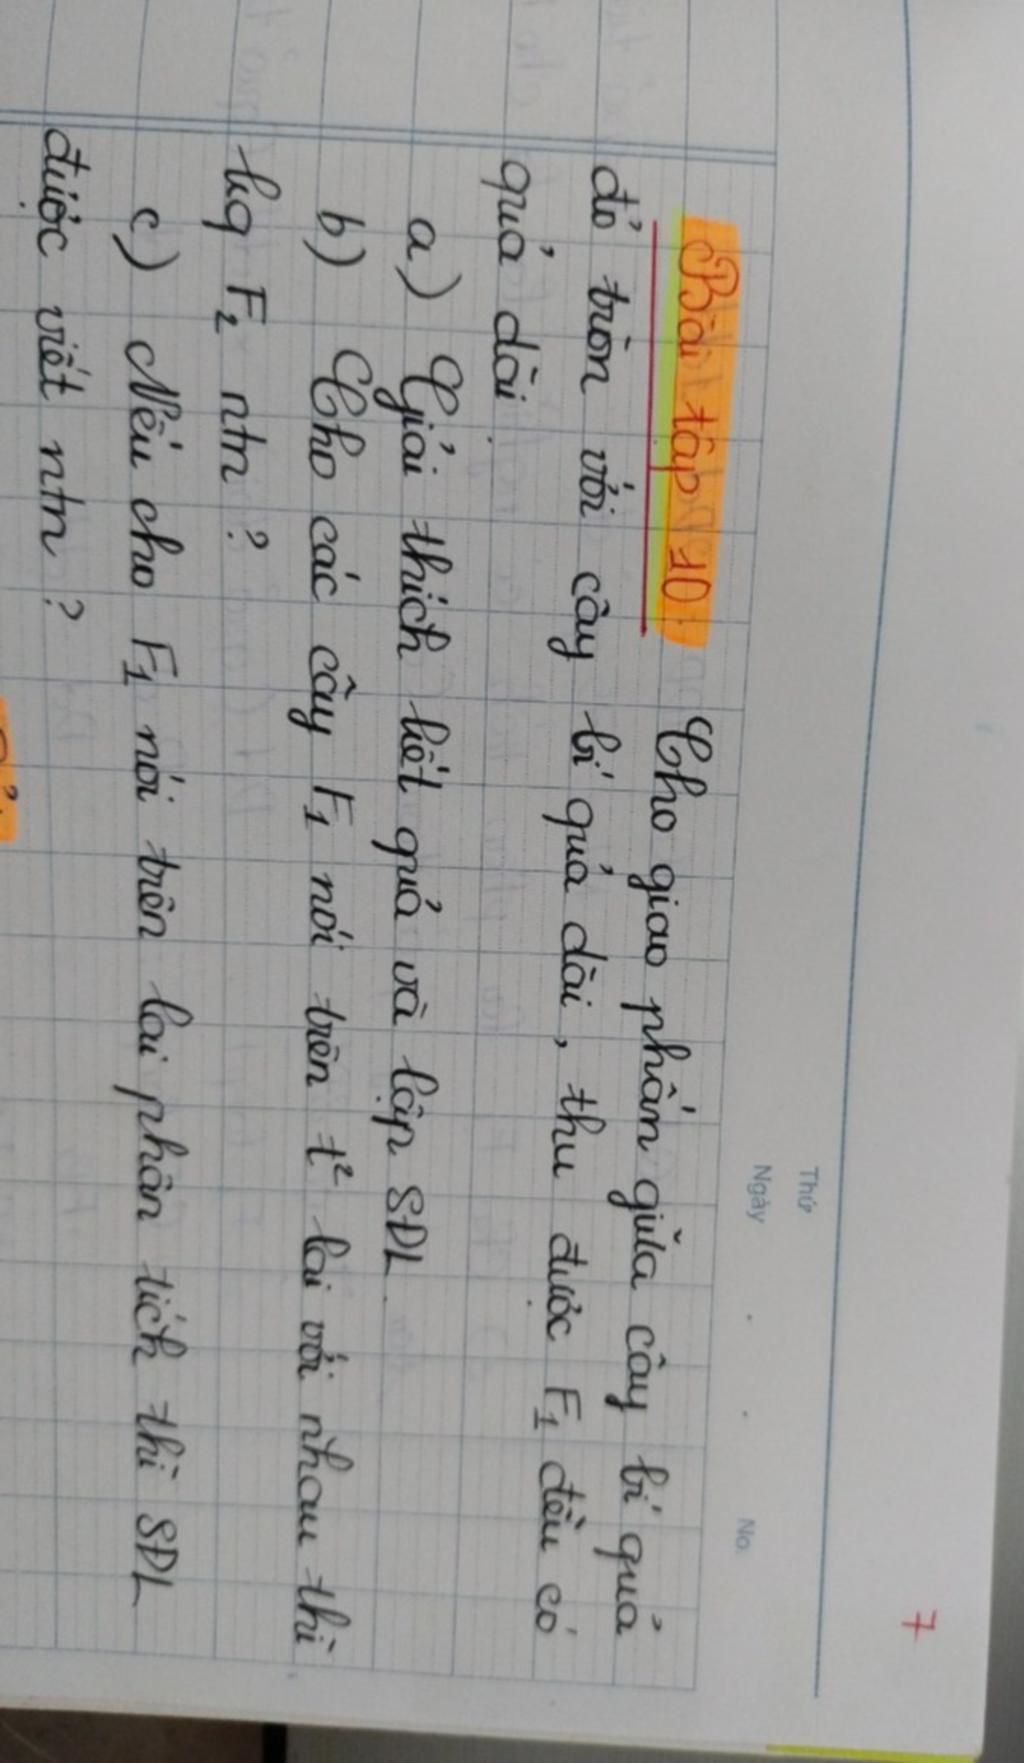 7
Thứ
Ngày No.
Bài tập 10 Cho giao phấn giữa cây bí quả
đỏ tròn với cây bí quả dài, thu được F1 đều có
quả dài.
a) Giải thích kết quả và lập SĐL.
b) Cho các cây F1 nói trên t2 lai với nhau thì
kq F2 ntn?
c) Nếu cho F1 nói trên lai phân tích thì SĐL
được viết ntn?